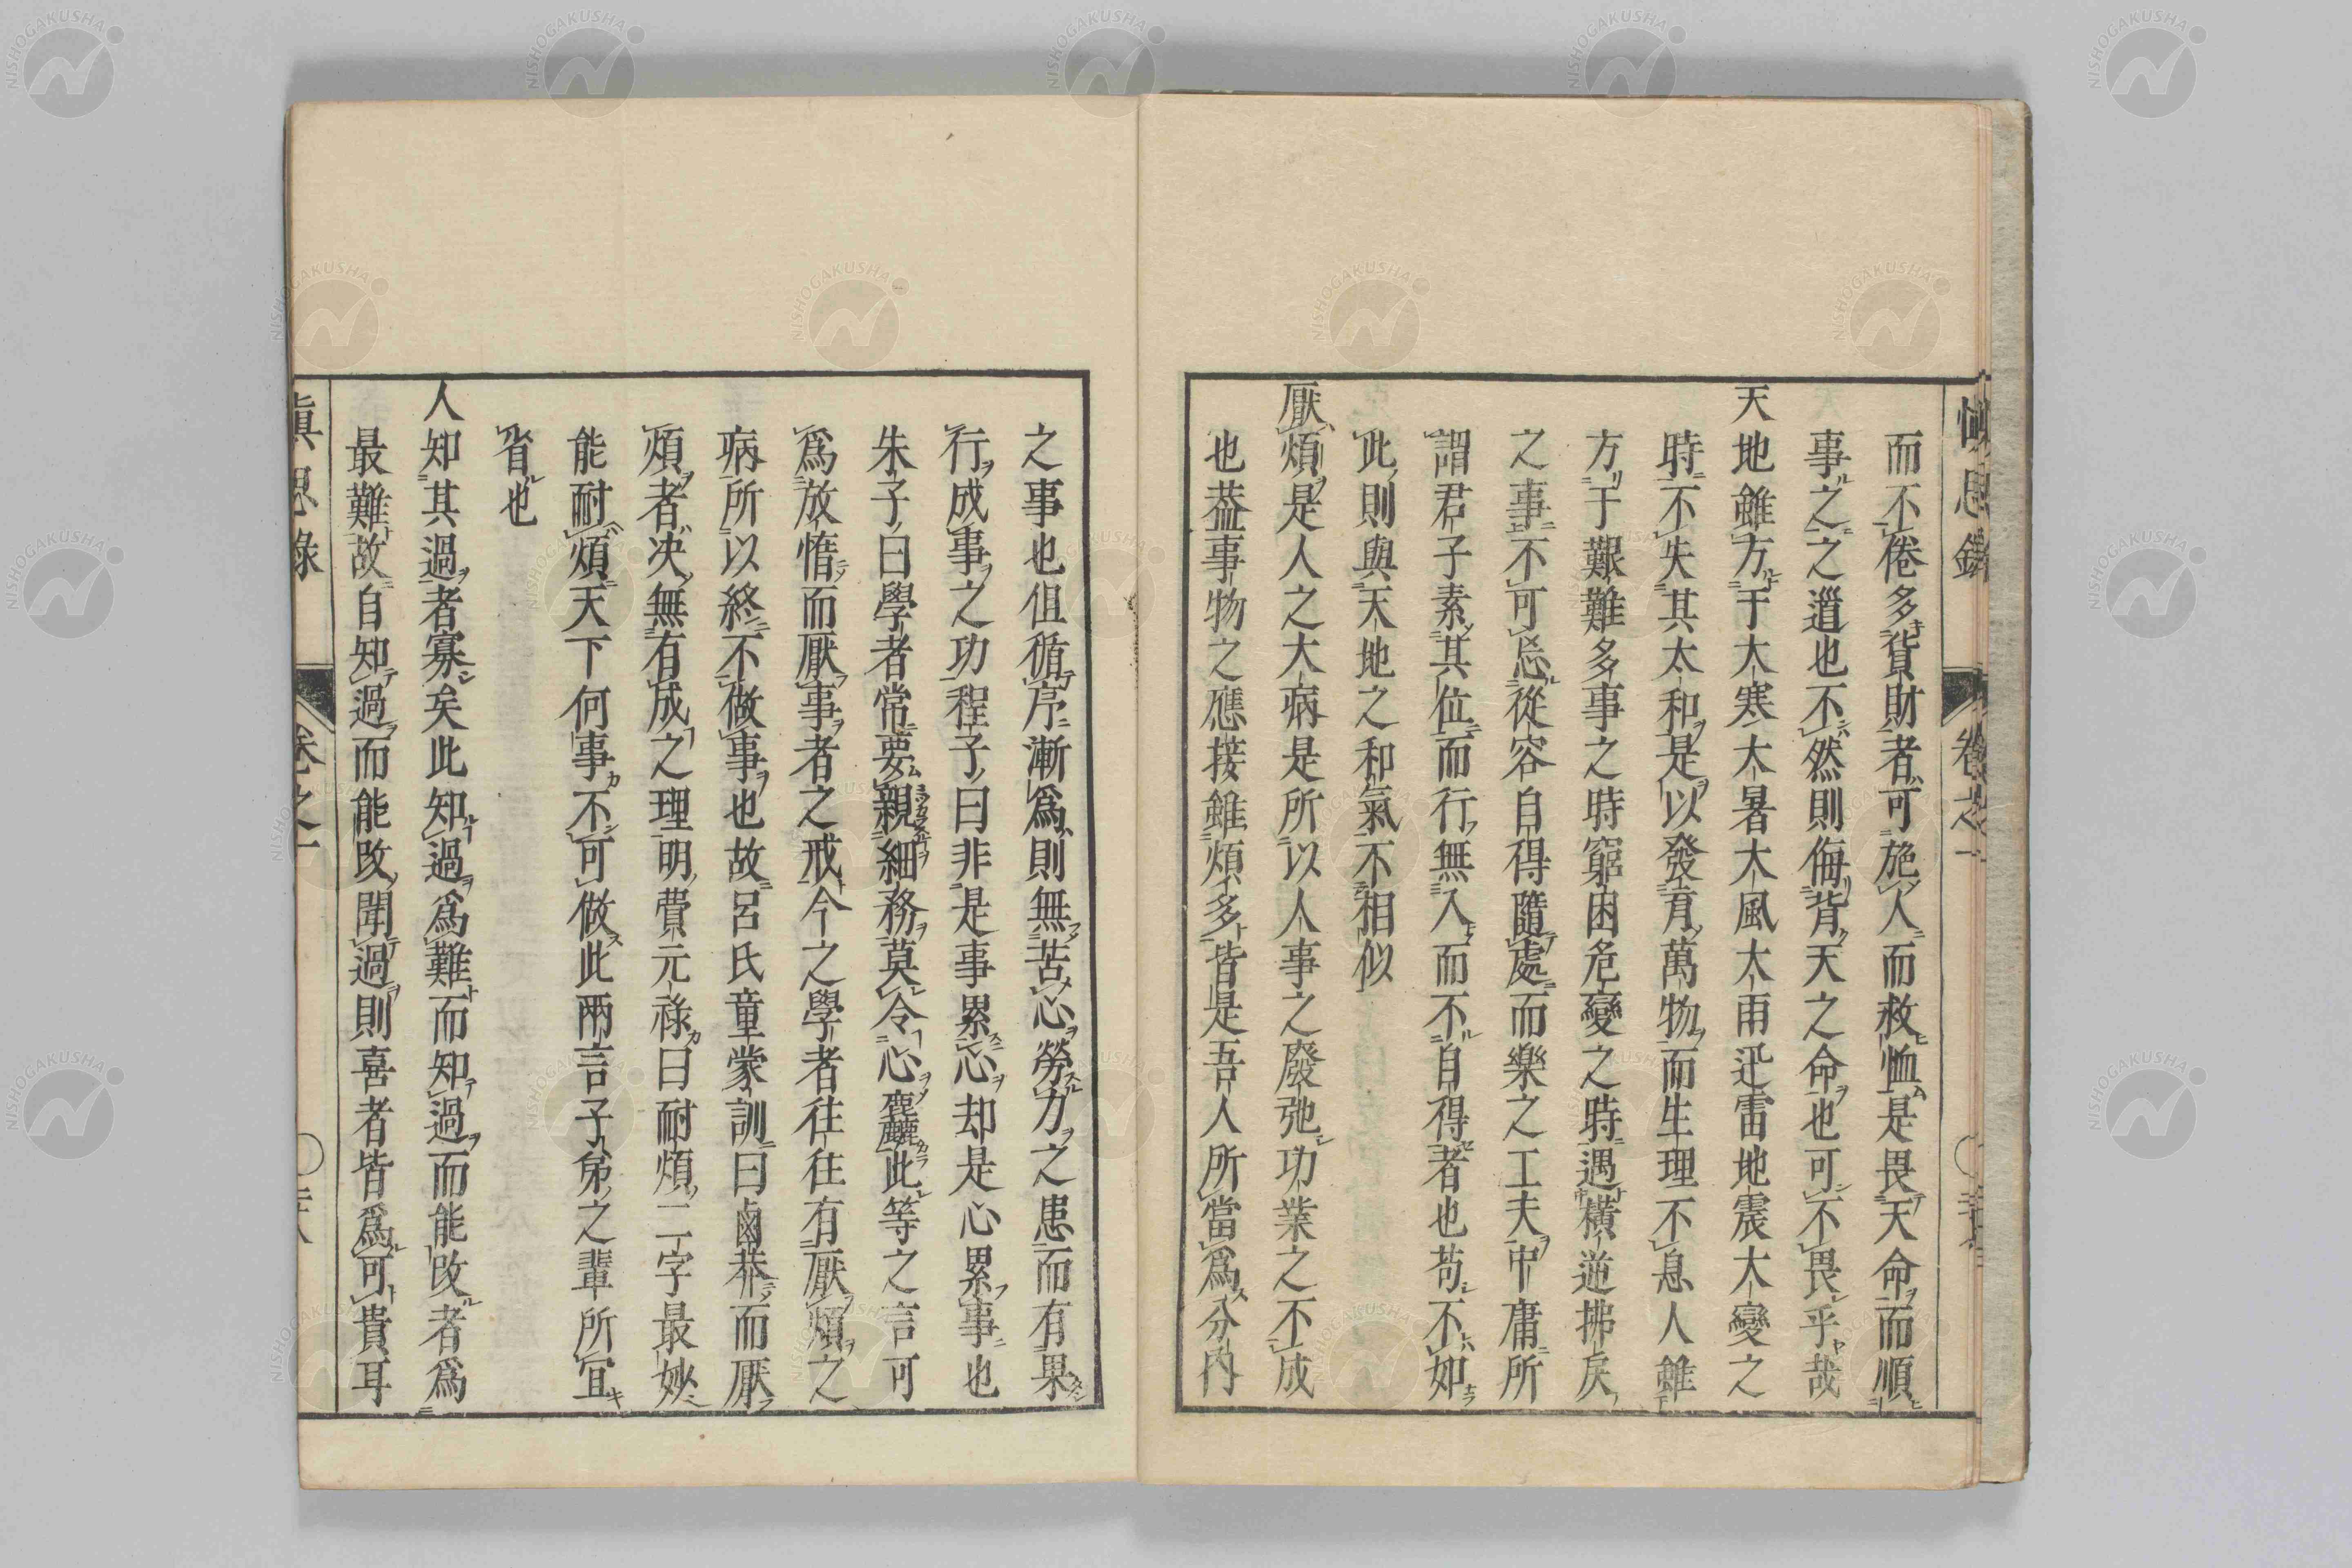 而不倦多貨財者可施人而救恤是畏天命而順
事之之道也不然則侮背天之命也可不畏乎哉
天地雖方于大寒大暑大風大雨迅雷地震大變之
時不失其太和是以發育萬物而生理不息人雖
方于艱難多事之時窮困危變之時遇橫逆拂戾
之事不可忘從容自得隨處而樂之工夫中庸所
謂君子素其位而行無入而不自得者也苟不如
此則與天地之和氣不相似
厭煩是人之大病是所以人事之廢弛功業之不成
也葢事物之應接雖煩多皆是吾人所當爲分内
愼思錄 卷之一
之事也但循序漸爲則無苦心勞力之患而有果
行成事之功程子曰非是事累心却是心累事也
朱子曰學者常要親細務莫令心麤此等之言可
爲放惰而厭事者之戒今之學者往往有厭煩之
病所以終不做事也故呂氏童蒙訓曰鹵莽而厭
煩者决無有成之理明費元祿曰耐煩二字最妙
能耐煩天下何事不可做此兩言子弟之輩所宜
省也
人知其過者寡矣此知過爲難而知過而能改者爲
最難故自知過而能改聞過則喜者皆爲可貴耳
愼思錄 卷之一
NISHOGAKUSHA